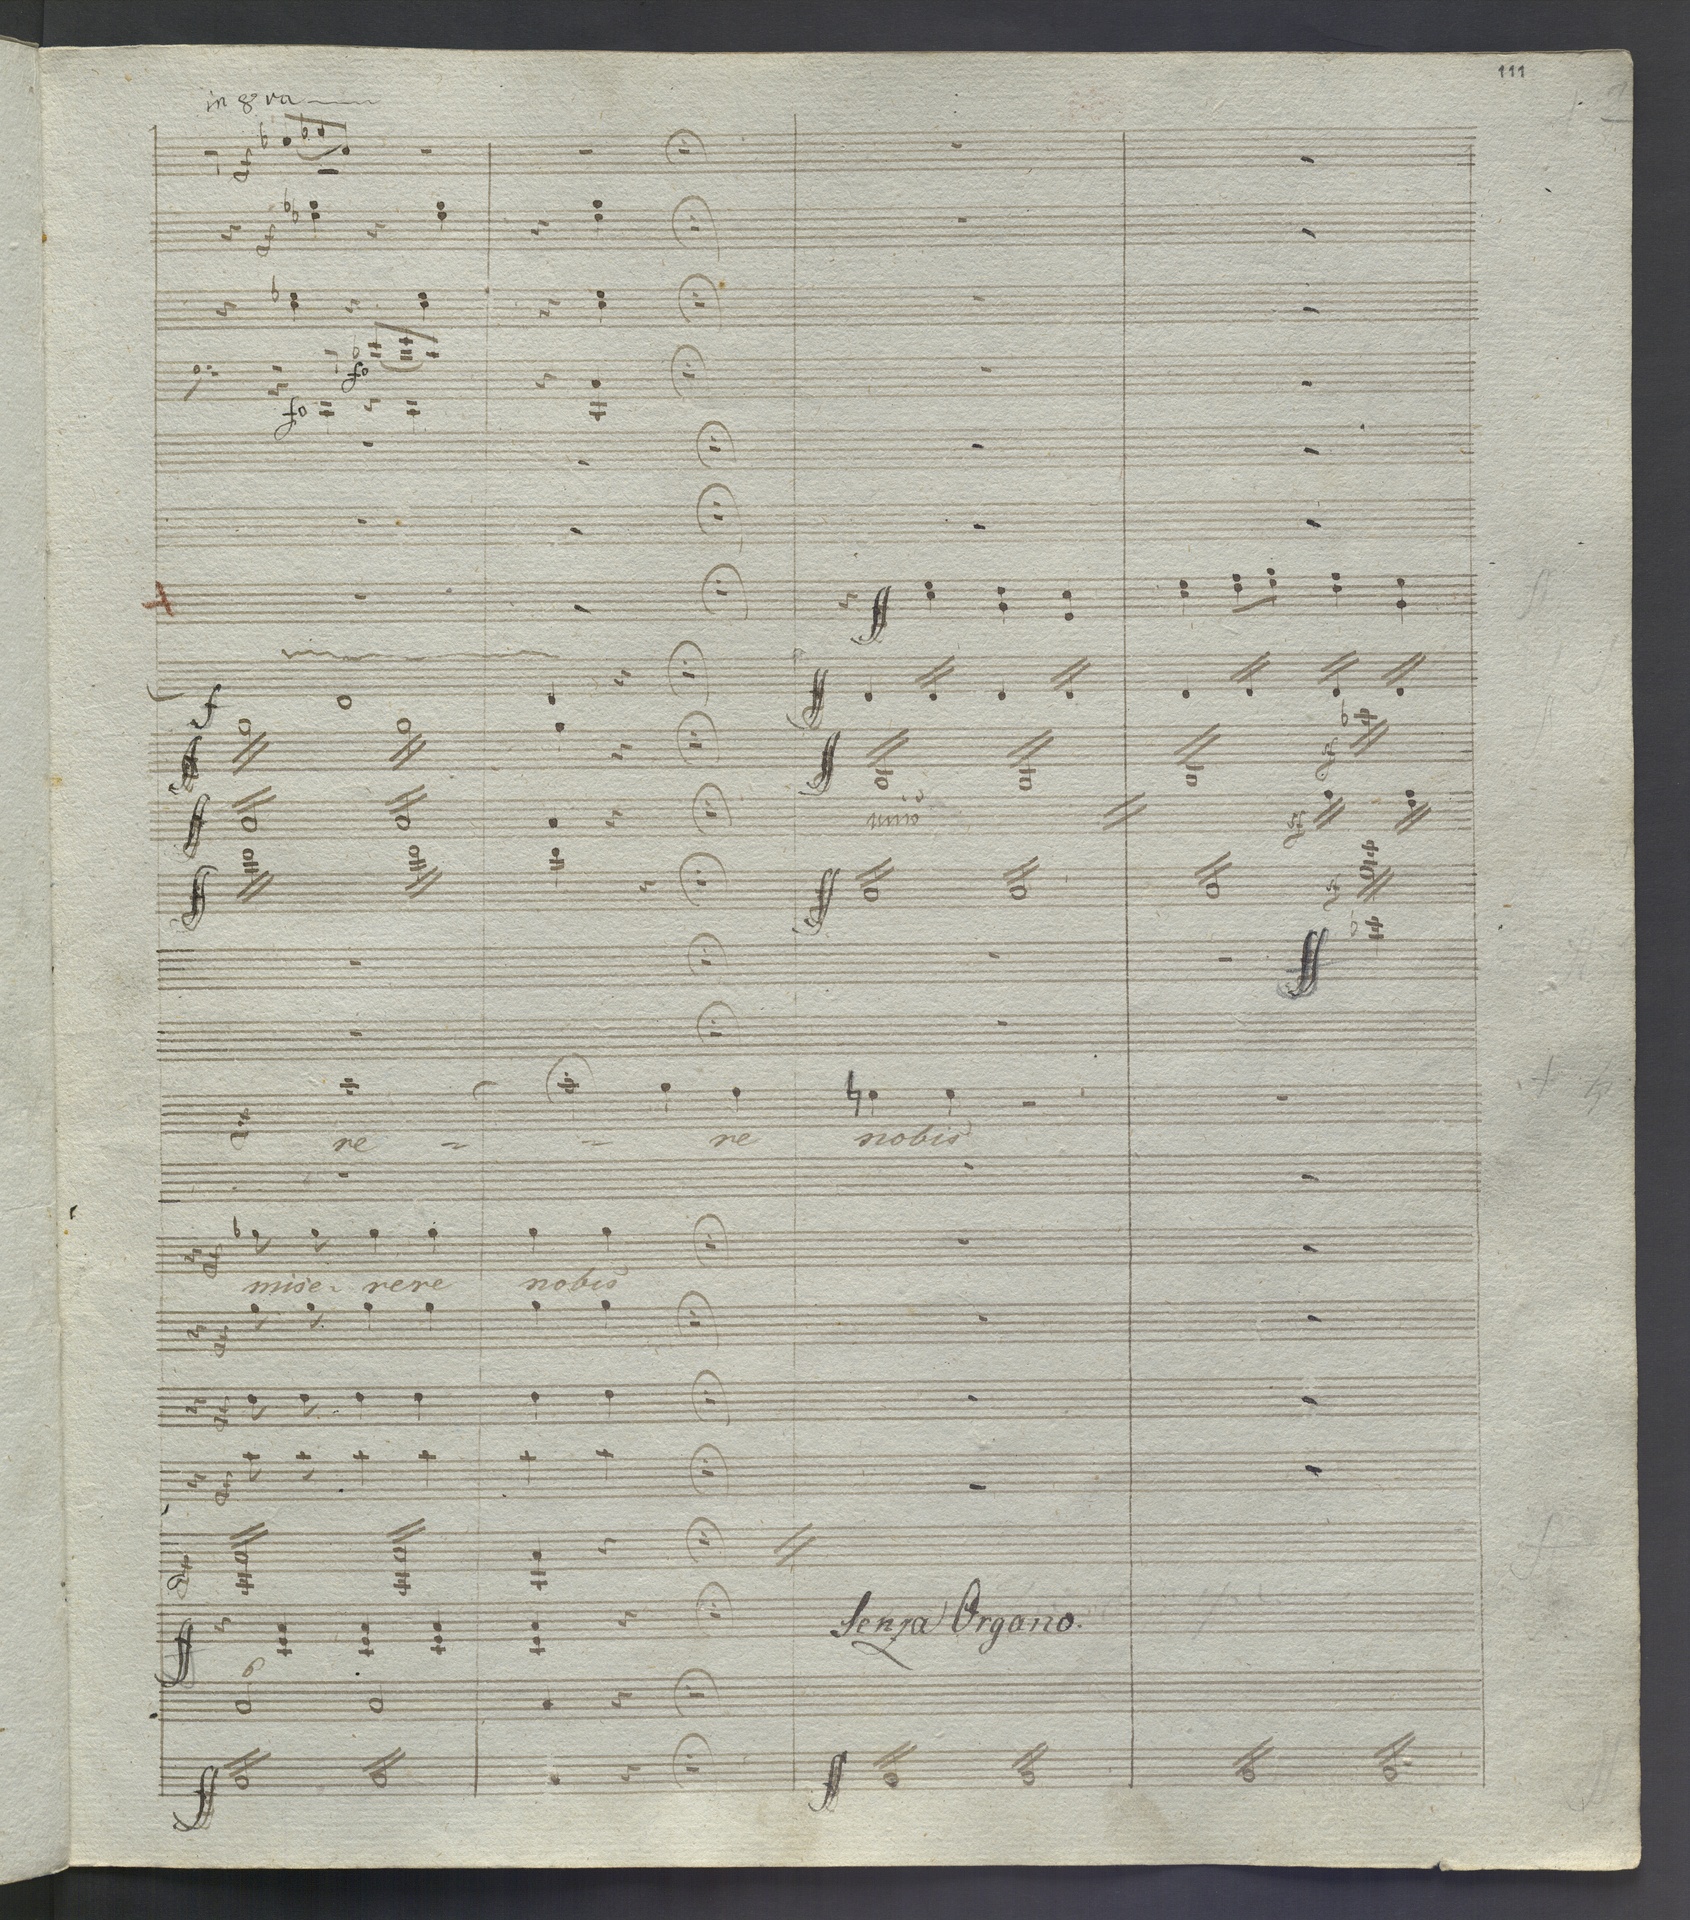 111
in 8va
f
ff
ff
ff
ff
ff
ff
unis
ff
ff
ff
re - - re nobis
mise- rere nobis
ff
Senza Organo.
6
ff
ff